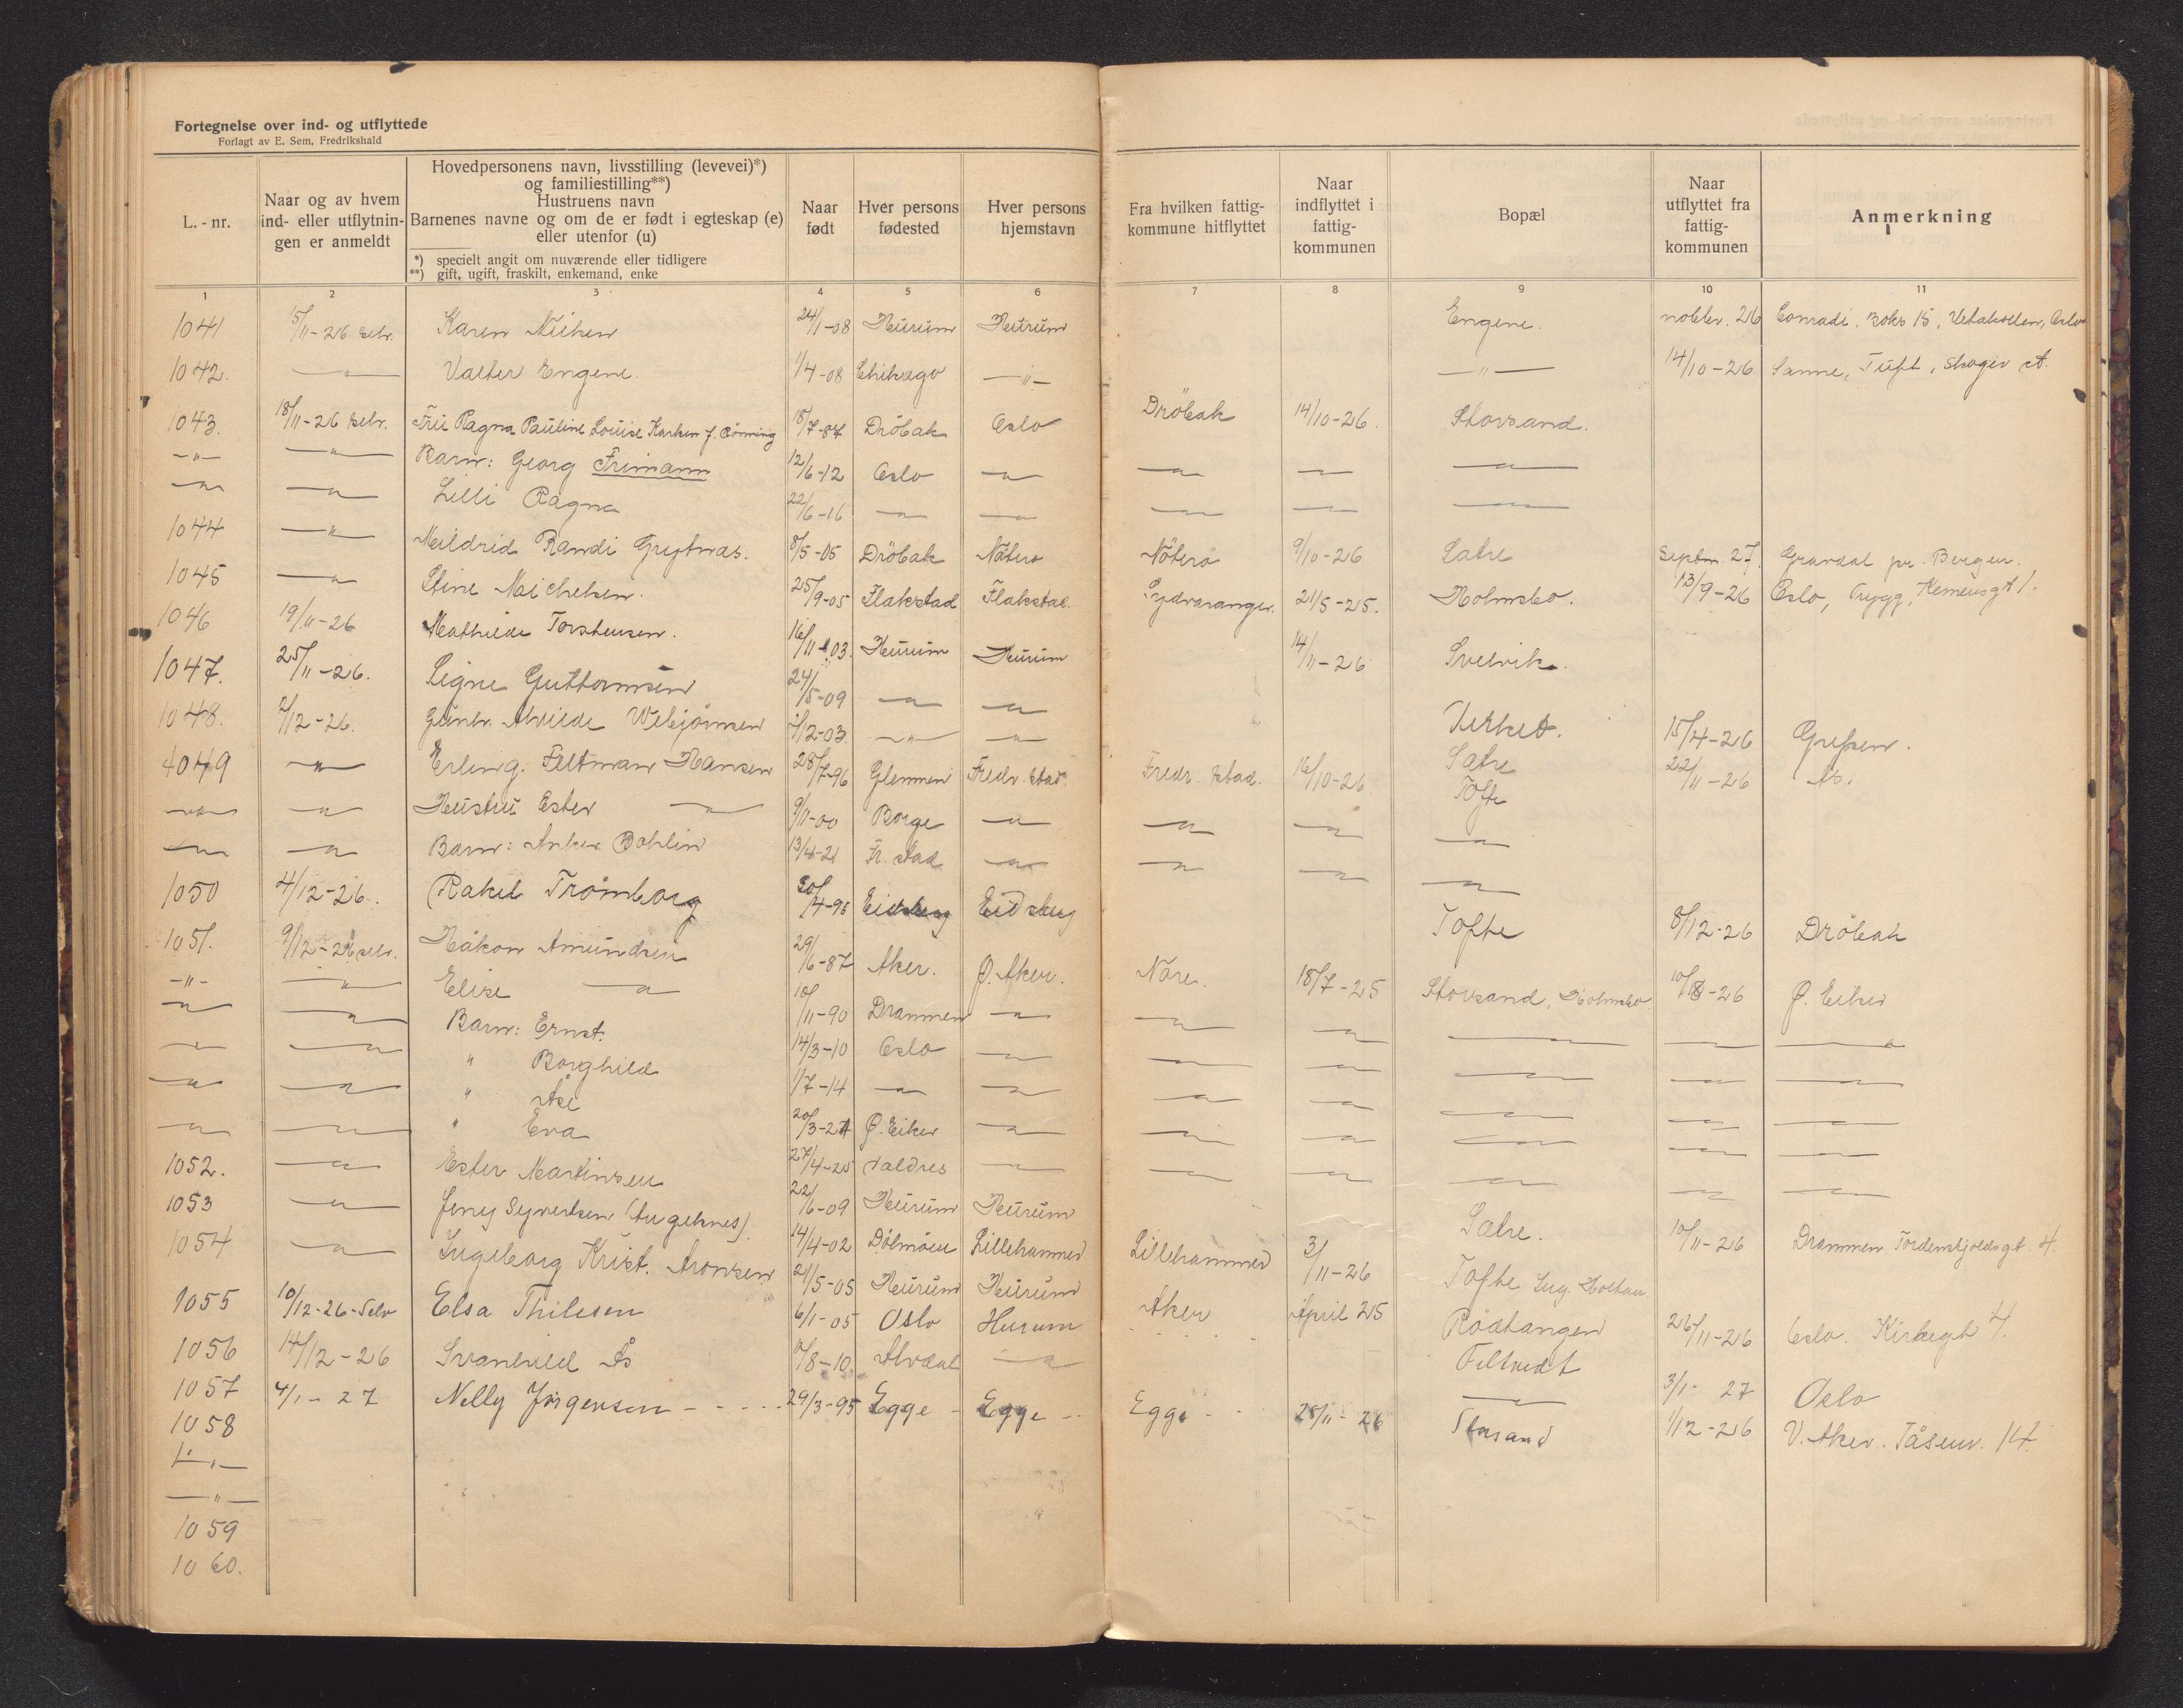 Fortegnelse over ind- og utflyttede
Forlagt av E. Sem, Fredrikshald
L.-nr. Naar og av hvem ind- eller utflytnin- gen er anmeldt Hovedpersonens navn, livsstilling (levevei)*) og familiestilling**) Hustruens navn Barnenes navne og om de er født i egteskap (e) eller utenfor (u) Naar født Hver persons fødested Hver persons hjemstavn Fra hvilken fattig- kommune hitflyttet Naar indflyttet i fattig- kommunen Bopæl Naar utflyttet fra fattig- kommunen Anmerkning
*) specielt angit om nuværende eller tidligere
**) gift, ugift, fraskilt, enkemand, enke
1 2 3 4 5 6 7 8 9 10 11
1041 15/11-26 selv. Karen 24/1-08 Hurum Hurum Engene. 26 Conradi. Boks 15, Oslo
1042. —"— Valter Engene. 1/4-08 Chikago —"— —"— 14/10-26 Sanne, Tuft, Skoger st.
1043. 18/11-26 selv. Fru Ragna Pauline Louise Karlsen f. Rönning 18/7-87 Dröbak Oslo Dröbak 14/10-26. Storsand.
—"— —"— Barn: Georg Frimann 12/6-12 Oslo —"— —"— —"— —"—
—"— —"— Lilli Ragna 22/6-16 —"— —"— —"— —"— —"—
1044 —"— Meildrid Randi Grytnas. 8/5-05 Dröbak Nöterö Nöterö 9/10-26 Satre Septm. 27. Gravdal pr. Bergen.
1045 —"— Stine Michelsen. 25/9-05 Flakstad Flakstad. Sydvaranger. 21/5-25. Holmsbo. 13/9-26 Oslo, Trygg,
1046 19/11-26 Mathilde Torstensen. 16/11-03. Hurum Hurum 14/11-26 Svelvik.
1047. 25/11-26. Signe Guttormsen 24/5-09 —"— —"— Verket. 15/4-26 Grefsen.
1048. 2/12-26. Alvilde Webjörnsen 2/12-03. —"— —"— Satre 22/11-26 As.
1049 —"— Erling. Feltman Hansen 28/7-96 Glemmen Fredr. stad. Fredr. stad. 16/10-26 Tofte
—"— —"— Hustru Ester —"— 9/11-00 Borge —"— —"— —"— —"—
—"— —"— Barn: Anker Bohlin 13/4-21 Fr. stad —"— —"— —"— —"—
1050 4/12-26. Rakel Trömborg 30/4-95 Eidsberg Eidsberg Tofte 8/12-26 Dröbak
1051. 9/12-26 selv. Håkon Amundsen 29/6-87 Aker. Ø. Aker. Nore. 18/7-25 Storsand, Holmsbo 10/12-26 Ø. Eiker
—"— —"— Elise —"— 10/11-90 Drammen —"— —"— —"— —"— —"— —"—
—"— —"— Barn: Ernst. 14/3-10 Oslo —"— —"— —"— —"— —"— —"—
—"— —"— " Borghild 1/7-14 —"— —"— —"— —"— —"— —"— —"—
—"— —"— " Åse 20/3-21 Ø. Eiker —"— —"— —"— —"— —"— —"—
—"— —"— " Eva 27/4-25 Valdres —"— —"— —"— —"— —"— —"—
1052. —"— Ester Martinsen 22/6-09 Hurum Hurum Satre. 10/11-26 Drammen Tordenskjoldsgt. 4.
1053 —"— Jeny Syvertsen 14/4-02 Dölmöen Lillehammer Lillehammer 3/11-26 Tofte
1054 —"— Ingeborg Krist. Aronsen 21/5-05 Hurum Hurum Aker April 25 Rödtangen 26/11-26 Oslo. Kirkegt 4.
1055 10/12-26-Selv Elsa Thilesen 6/1-05 Oslo Hurum Filtvedt
1056 14/12-26 Svanhild Ås /8-10 Alvdal —"— —"— 3/1-27 Oslo
1057 4/1-27 Nelly Jörgensen 29/3-95 Egge Egge Egge 28/11-26 Storsand 1/12-26 V. Aker. Tåsenv. 14.
1058
—"—
—"—
1059
1060.